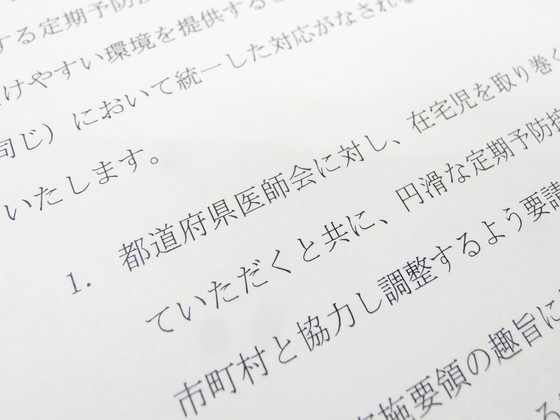 する定期予防接
けやすい環境を提供するこ
同じ）において統一した対応がなされ
いたします。
1. 都道府県医師会に対し、在宅児を取り巻く
ていただくと共に、円滑な定期予防接
市町村と協力し調整するよう要請
施要領の趣旨に